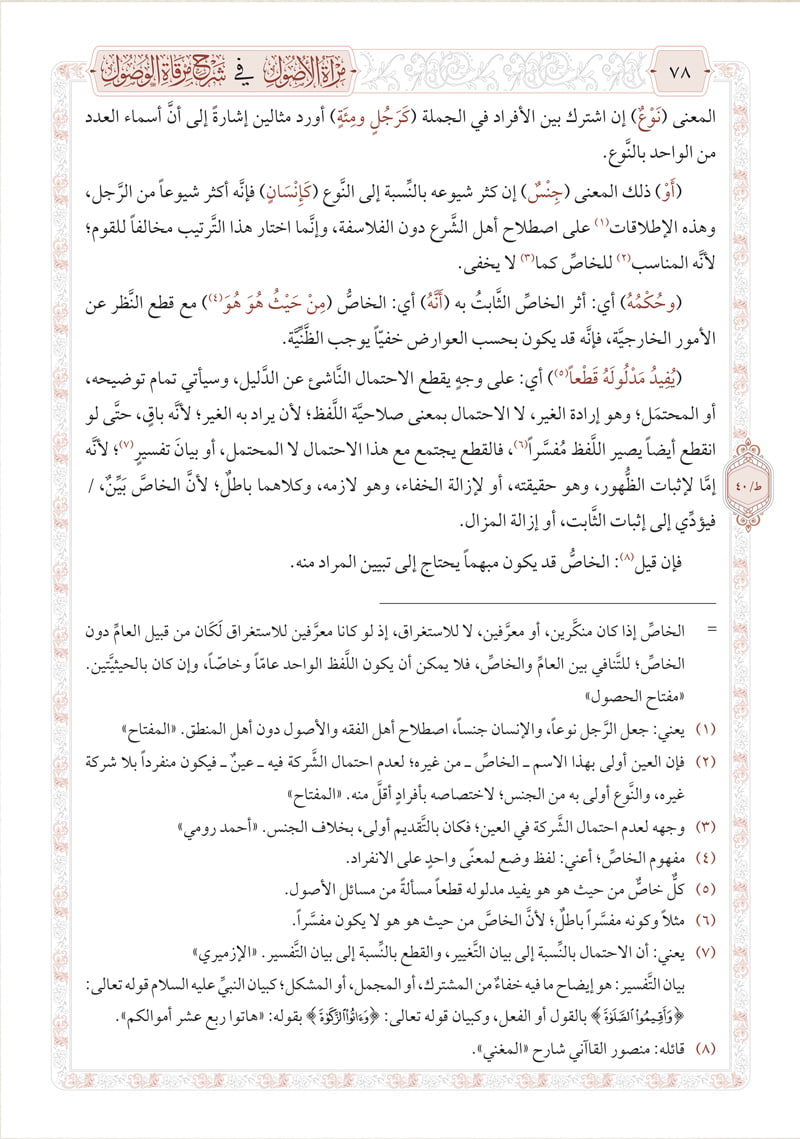 ٧٨
مرآة الأصول في شرح مرقاة الوصول
المعنى (نَوْعٌ) إن اشترك بين الأفراد في الجملة (كَرَجُلٍ ومِئَةٍ) أورد مثالين إشارةً إلى أنَّ أسماء العدد
من الواحد بالنَّوع.
(أَوْ) ذلك المعنى (جِنْسٌ) إن كثر شيوعه بالنِّسبة إلى النَّوع (كَإِنْسَانٍ) فإنَّه أكثر شيوعاً من الرَّجل،
وهذه الإطلاقات(١) على اصطلاح أهل الشَّرع دون الفلاسفة، وإنَّما اختار هذا التَّرتيب مخالفاً للقوم؛
لأنَّه المناسب(٢) للخاصِّ كما(٣) لا يخفى.
(وحُكْمُهُ) أي: أثر الخاصِّ الثَّابتُ به (أَنَّهُ) أي: الخاصُّ (مِنْ حَيْثُ هُوَ هُوَ(٤)) مع قطع النَّظر عن
الأمور الخارجيَّة، فإنَّه قد يكون بحسب العوارض خفيّاً يوجب الظَّنِّيَّة.
(يُفِيدُ مَدْلُولَهُ قَطْعاً(٥)) أي: على وجهٍ يقطع الاحتمال النَّاشئ عن الدَّليل، وسيأتي تمام توضيحه،
أو المحتمَل؛ وهو إرادة الغير، لا الاحتمال بمعنى صلاحيَّة اللَّفظ؛ لأن يراد به الغير؛ لأنَّه باقٍ، حتَّى لو
انقطع أيضاً يصير اللَّفظ مُفسَّراً(٦)، فالقطع يجتمع مع هذا الاحتمال لا المحتمل، أو بيانَ تفسيرٍ(٧)؛ لأنَّه
إمَّا لإثبات الظُّهور، وهو حقيقته، أو لإزالة الخفاء، وهو لازمه، وكلاهما باطلٌ؛ لأنَّ الخاصَّ بَيِّنٌ، /
ط/٤٠
فيؤدِّي إلى إثبات الثَّابت، أو إزالة المزال.
فإن قيل(٨): الخاصُّ قد يكون مبهماً يحتاج إلى تبيين المراد منه.
= الخاصِّ إذا كان منكَّرين، أو معرَّفين، لا للاستغراق، إذ لو كانا معرَّفين للاستغراق لَكَان من قبيل العامِّ دون
الخاصِّ؛ للتَّنافي بين العامِّ والخاصِّ، فلا يمكن أن يكون اللَّفظ الواحد عامّاً وخاصّاً، وإن كان بالحيثيَّتين.
«مفتاح الحصول»
(١) يعني: جعل الرَّجل نوعاً، والإنسان جنساً، اصطلاح أهل الفقه والأصول دون أهل المنطق. «المفتاح»
(٢) فإن العين أولى بهذا الاسم ــ الخاصِّ ــ من غيره؛ لعدم احتمال الشَّركة فيه ــ عينٌ ــ فيكون منفرداً بلا شركة
غيره، والنَّوع أولى به من الجنس؛ لاختصاصه بأفرادٍ أقلَّ منه. «المفتاح»
(٣) وجهه لعدم احتمال الشَّركة في العين؛ فكان بالتَّقديم أولى، بخلاف الجنس. «أحمد رومي»
(٤) مفهوم الخاصِّ؛ أعني: لفظ وضع لمعنًى واحدٍ على الانفراد.
(٥) كلُّ خاصٍّ من حيث هو هو يفيد مدلوله قطعاً مسألةً من مسائل الأصول.
(٦) مثلاً وكونه مفسَّراً باطلٌ؛ لأنَّ الخاصَّ من حيث هو هو لا يكون مفسَّراً.
(٧) يعني: أن الاحتمال بالنِّسبة إلى بيان التَّغيير، والقطع بالنِّسبة إلى بيان التَّفسير. «الإزميري»
بيان التَّفسير: هو إيضاح ما فيه خفاءٌ من المشترك، أو المجمل، أو المشكل؛ كبيان النبيِّ عليه السلام قوله تعالى:
﴿وَأَقِيمُواْ ٱلصَّلَوٰةَ﴾ بالقول أو الفعل، وكبيان قوله تعالى: ﴿وَءَاتُواْ ٱلزَّكَوٰةَ﴾ بقوله: «هاتوا ربع عشر أموالكم».
(٨) قائله: منصور القاآني شارح «المغني».